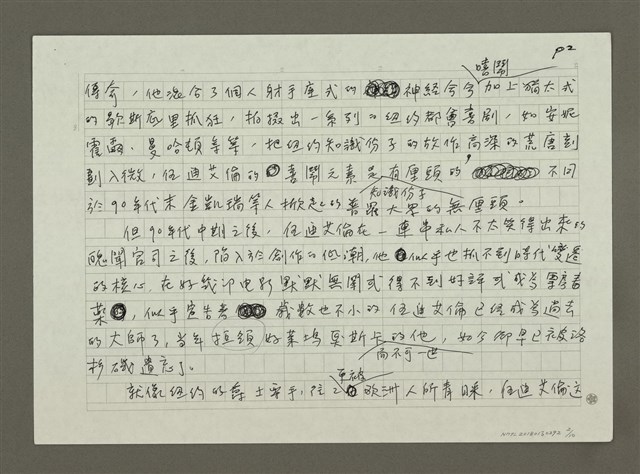 P2
嘻鬧
傳奇，他混合了個人射手座式的神經兮兮加上猶太式
的歇斯底里抓狂，拍攝出一系列的紐約都會喜劇，如安妮
霍爾、曼哈頓等等，把紐約知識份子的故作高深的荒唐刻
劃入微，伍迪艾倫的喜鬧元素是有厘頭的，不同
知識份子
於90年代末金凱瑞等人掀起的普羅大眾的無厘頭。
但90年代中期之後，伍迪艾倫在一連串私人不太笑得出來的
醜聞官司之後，陷入於創作的低潮，他似乎也抓不到時代變遷
的核心，在好幾部電影默默無聞或得不到好評或成為票房毒
藥，似乎宣告著歲數也不小的伍迪艾倫已經成為過去
的大師了，當年拒領好萊塢奧斯卡的他，如今卻早已被洛
高不可一世
杉磯遺忘了。
更被
就像紐約的爵士樂手，往歐洲人所青睞，伍迪艾倫這
NMTL20180130292 2/10